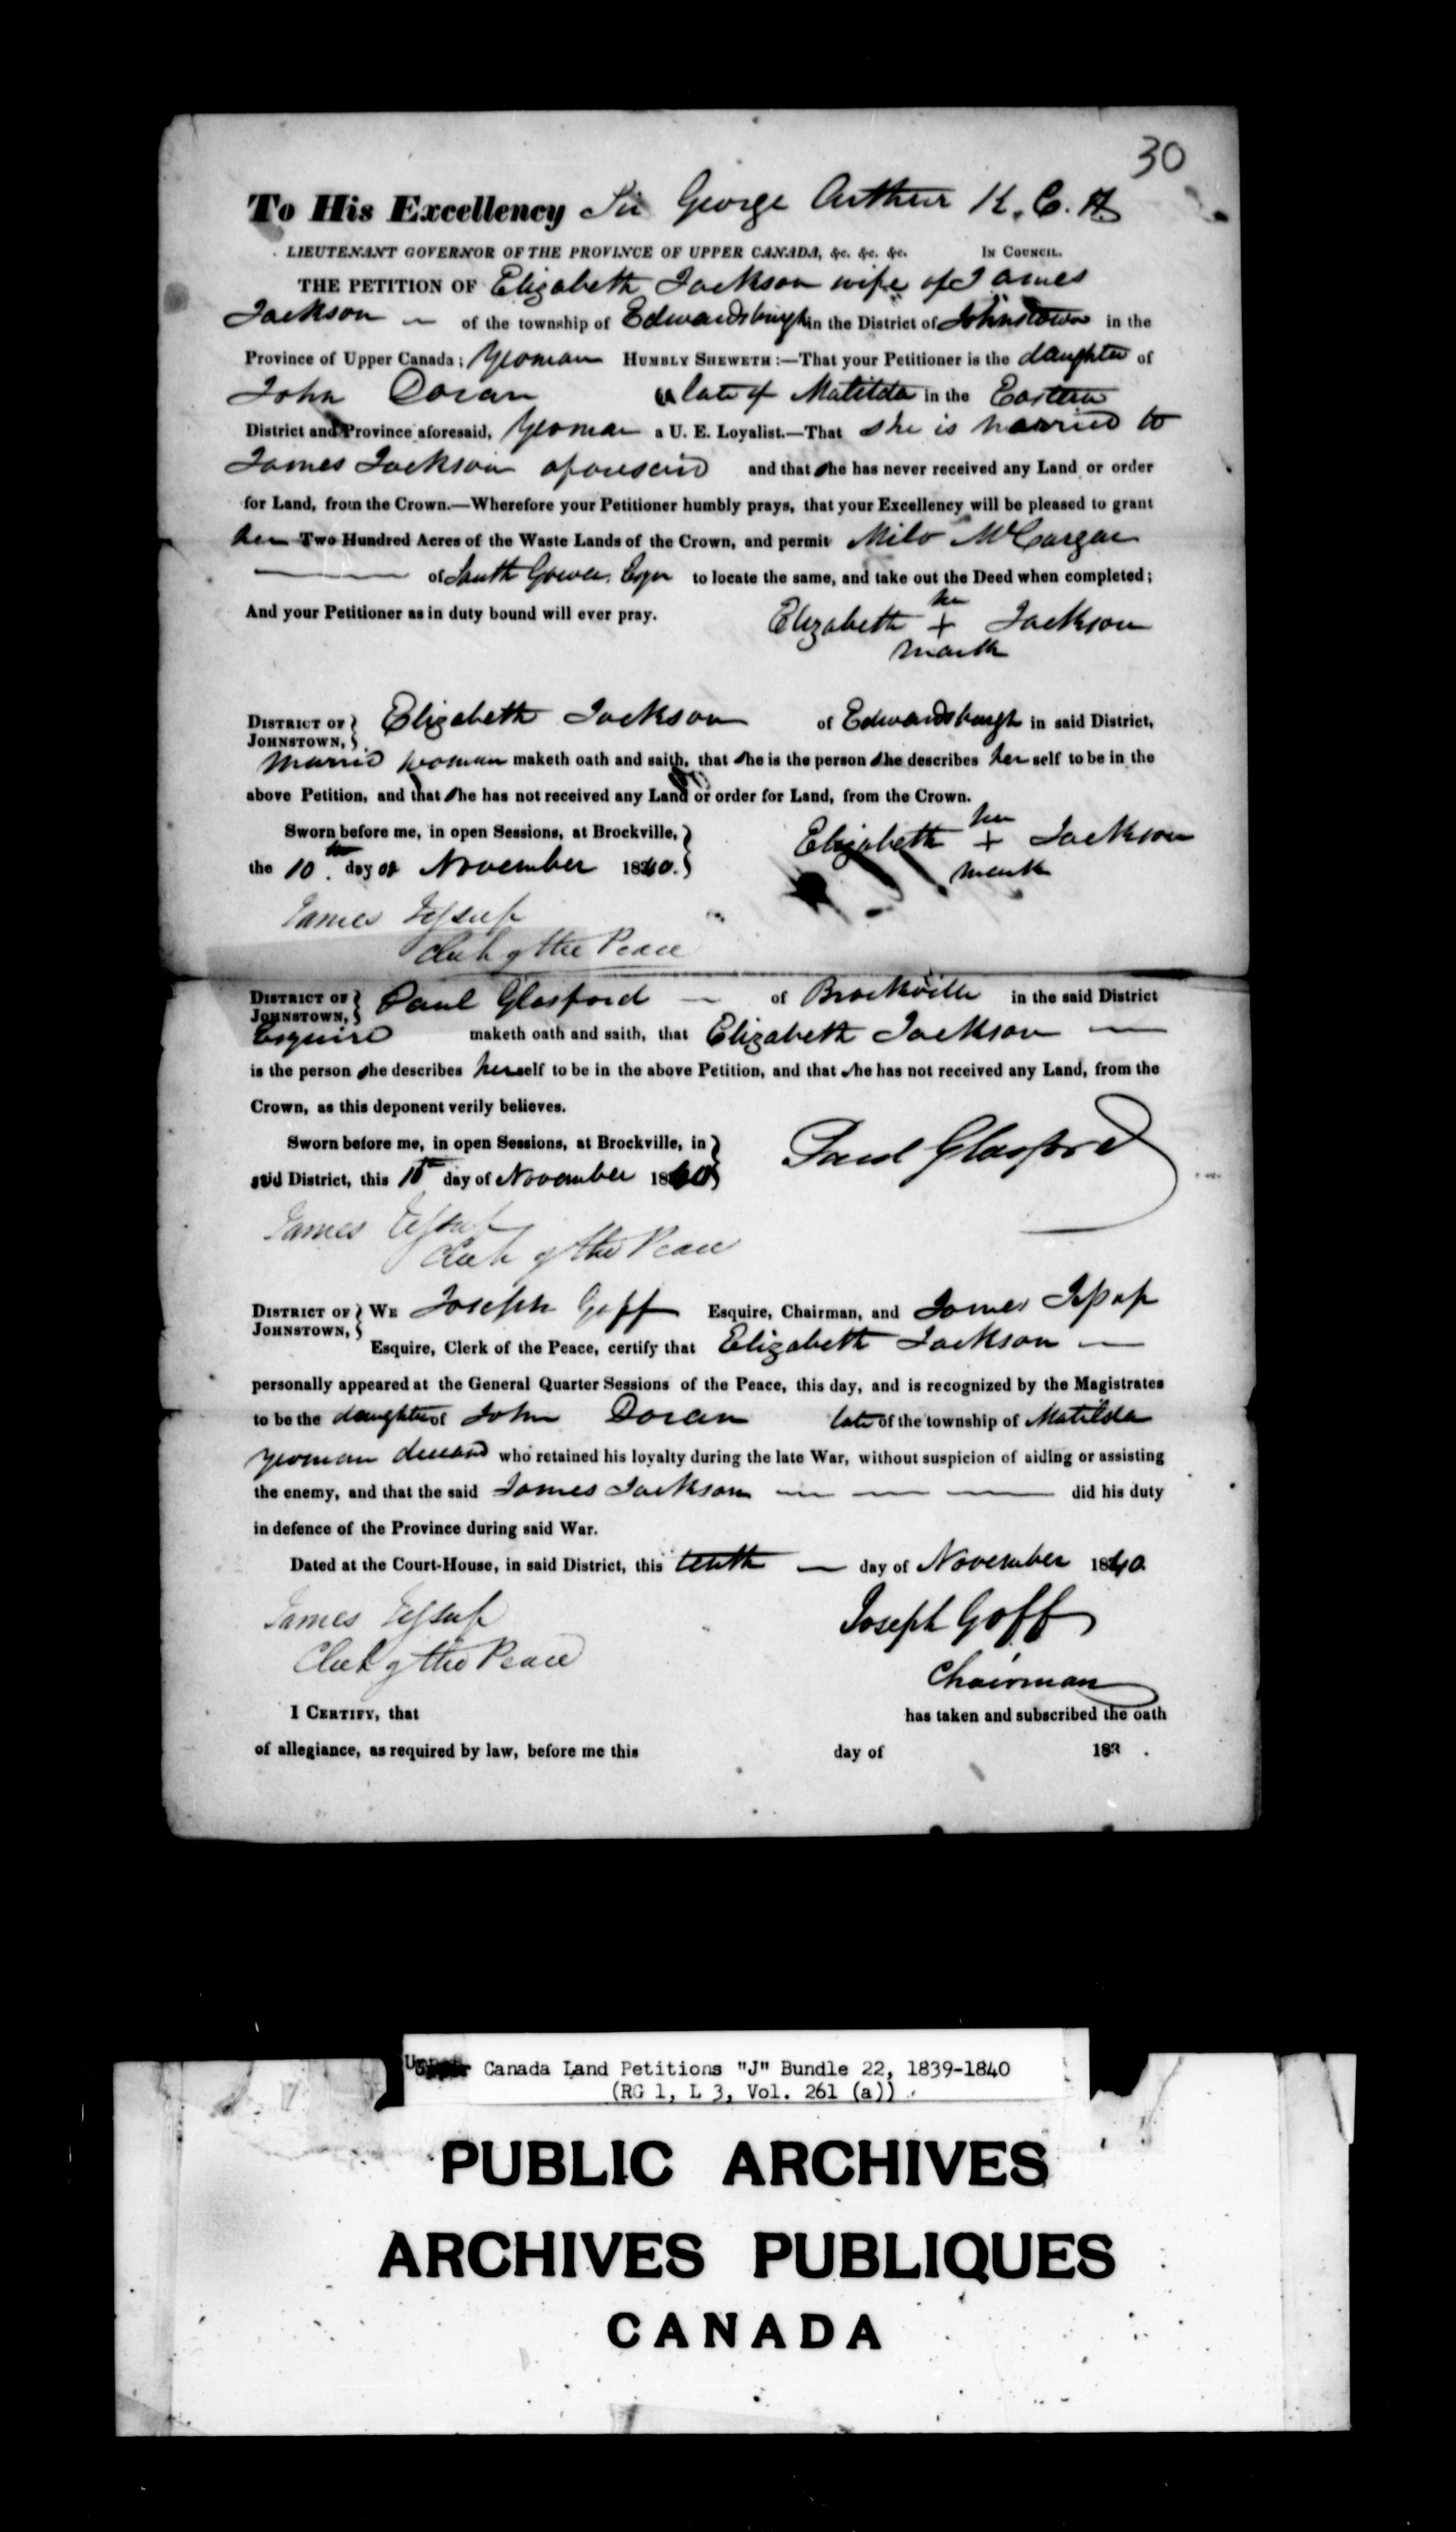 30
To His Excellency Sir George Arthur K. C. H
LIEUTENANT GOVERNOR OF THE PROVINCE OF UPPER CANADA, &c. &c. &c. IN COUNCIL.
THE PETITION OF Elizabeth Jackson wife of James
Jackson — of the township of Edwardsburgh in the District of Johnstown in the
Province of Upper Canada; Yeoman HUMBLY SHEWETH:—That your Petitioner is the daughter of
John Doran late of Matilda in the Eastern
District and Province aforesaid, Yeoman a U. E. Loyalist.—That she is married to
James Jackson aforesaid and that she has never received any Land or order
for Land, from the Crown.—Wherefore your Petitioner humbly prays, that your Excellency will be pleased to grant
her Two Hundred Acres of the Waste Lands of the Crown, and permit Milo McCargar
— of South Gower Esqr to locate the same, and take out the Deed when completed;
And your Petitioner as in duty bound will ever pray. Elizabeth her + mark Jackson
DISTRICT OF JOHNSTOWN, } Elizabeth Jackson of Edwardsburgh in said District,
Married woman maketh oath and saith, that she is the person she describes her self to be in the
above Petition, and that she has not received any Land or order for Land, from the Crown.
Sworn before me, in open Sessions, at Brockville, }
the 10th day of November 1840. } Elizabeth her + mark Jackson
James Jessup
Clerk of the Peace
DISTRICT OF JOHNSTOWN, } Paul Glasford — of Brockville in the said District
Esquire maketh oath and saith, that Elizabeth Jackson —
is the person she describes herself to be in the above Petition, and that she has not received any Land, from the
Crown, as this deponent verily believes.
Sworn before me, in open Sessions, at Brockville, in }
said District, this 10th day of November 1840 } Paul Glasford
James Jessup
Clerk of the Peace
DISTRICT OF JOHNSTOWN, } WE Joseph Goff Esquire, Chairman, and James Jessup
Esquire, Clerk of the Peace, certify that Elizabeth Jackson —
personally appeared at the General Quarter Sessions of the Peace, this day, and is recognized by the Magistrates
to be the daughter of John Doran late of the township of Matilda
yeoman deceasd who retained his loyalty during the late War, without suspicion of aiding or assisting
the enemy, and that the said James Jackson — — — did his duty
in defence of the Province during said War.
Dated at the Court-House, in said District, this tenth — day of November 1840
James Jessup Joseph Goff
Clerk of the Peace Chairman
I CERTIFY, that has taken and subscribed the oath
of allegiance, as required by law, before me this day of 183 .
Canada Land Petitions "J" Bundle 22, 1839-1840
(RG 1, L 3, Vol. 261 (a))
PUBLIC ARCHIVES
ARCHIVES PUBLIQUES
CANADA